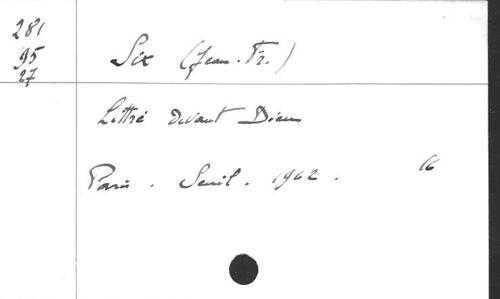 281
95
27
Six (Jean-Fr.)
Littré devant Dieu
Paris. Seuil. 1962. 16